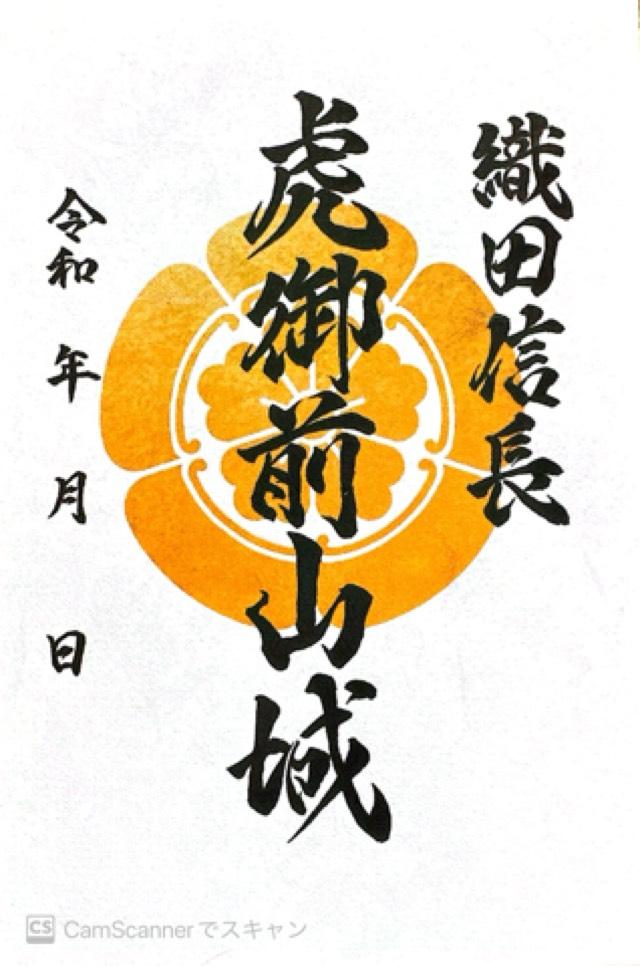 織田信長
虎御前山城
令和 年 月 日
CS CamScanner でスキャン